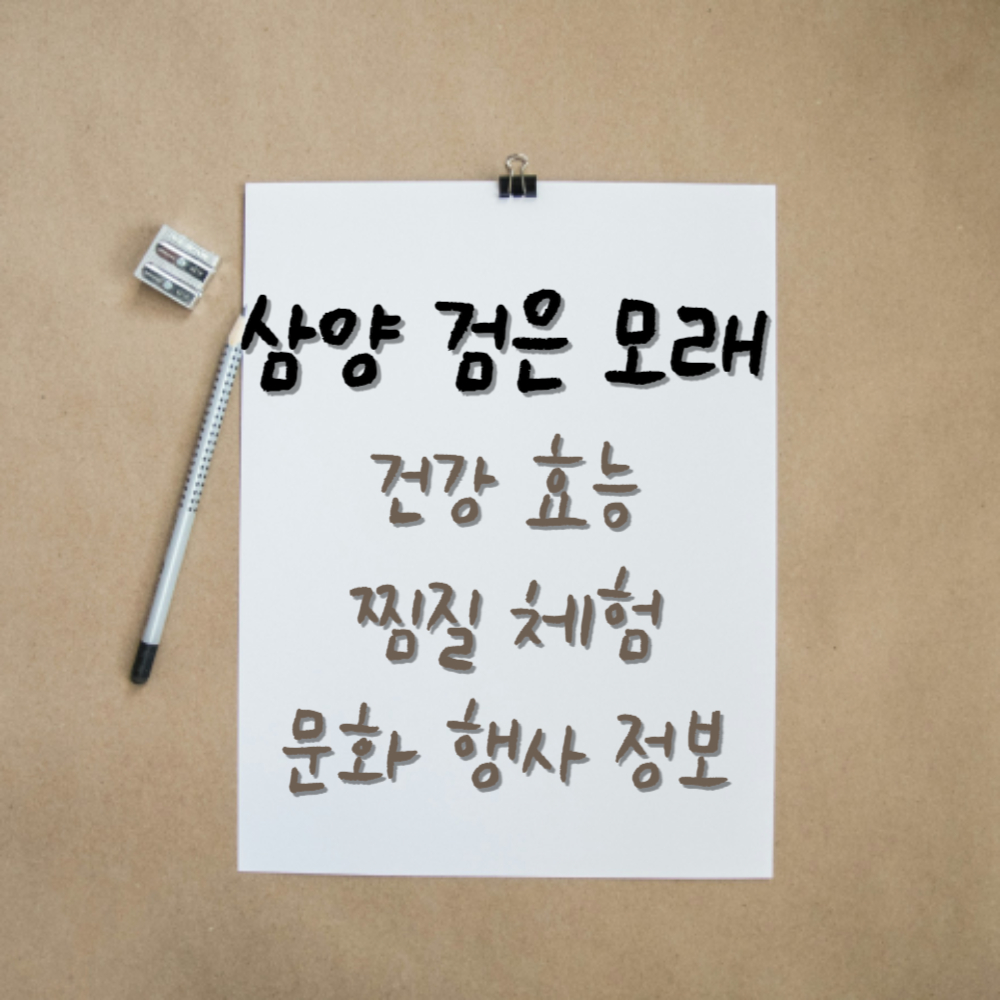 삼양 검은 모래
건강 효능
찜질 체험
문화 행사 정보